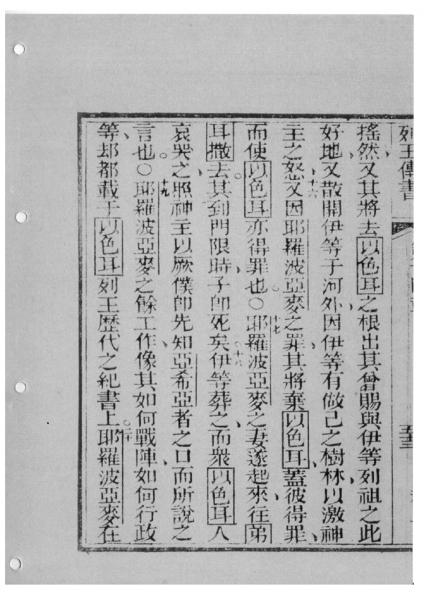 列王傳書
搖然又其將去以色耳之根出其曾賜與伊等列祖之此
好地又散開伊等于河外因伊等有做己之樹林以激神
主之怒十六又因耶羅波亞麥之罪其將棄以色耳蓋彼得罪
而使以色耳亦得罪也○十七耶羅波亞麥之妻遂起來往弟
耳撒去其到門限時子即死矣十八伊等葬之而眾以色耳人
哀哭之照神主以厥僕即先知亞希亞者之口而所說之
言也○十九耶羅波亞麥之餘工作像其如何戰陣如何行政
等却都載于以色耳列王歷代之紀書上二十耶羅波亞麥在